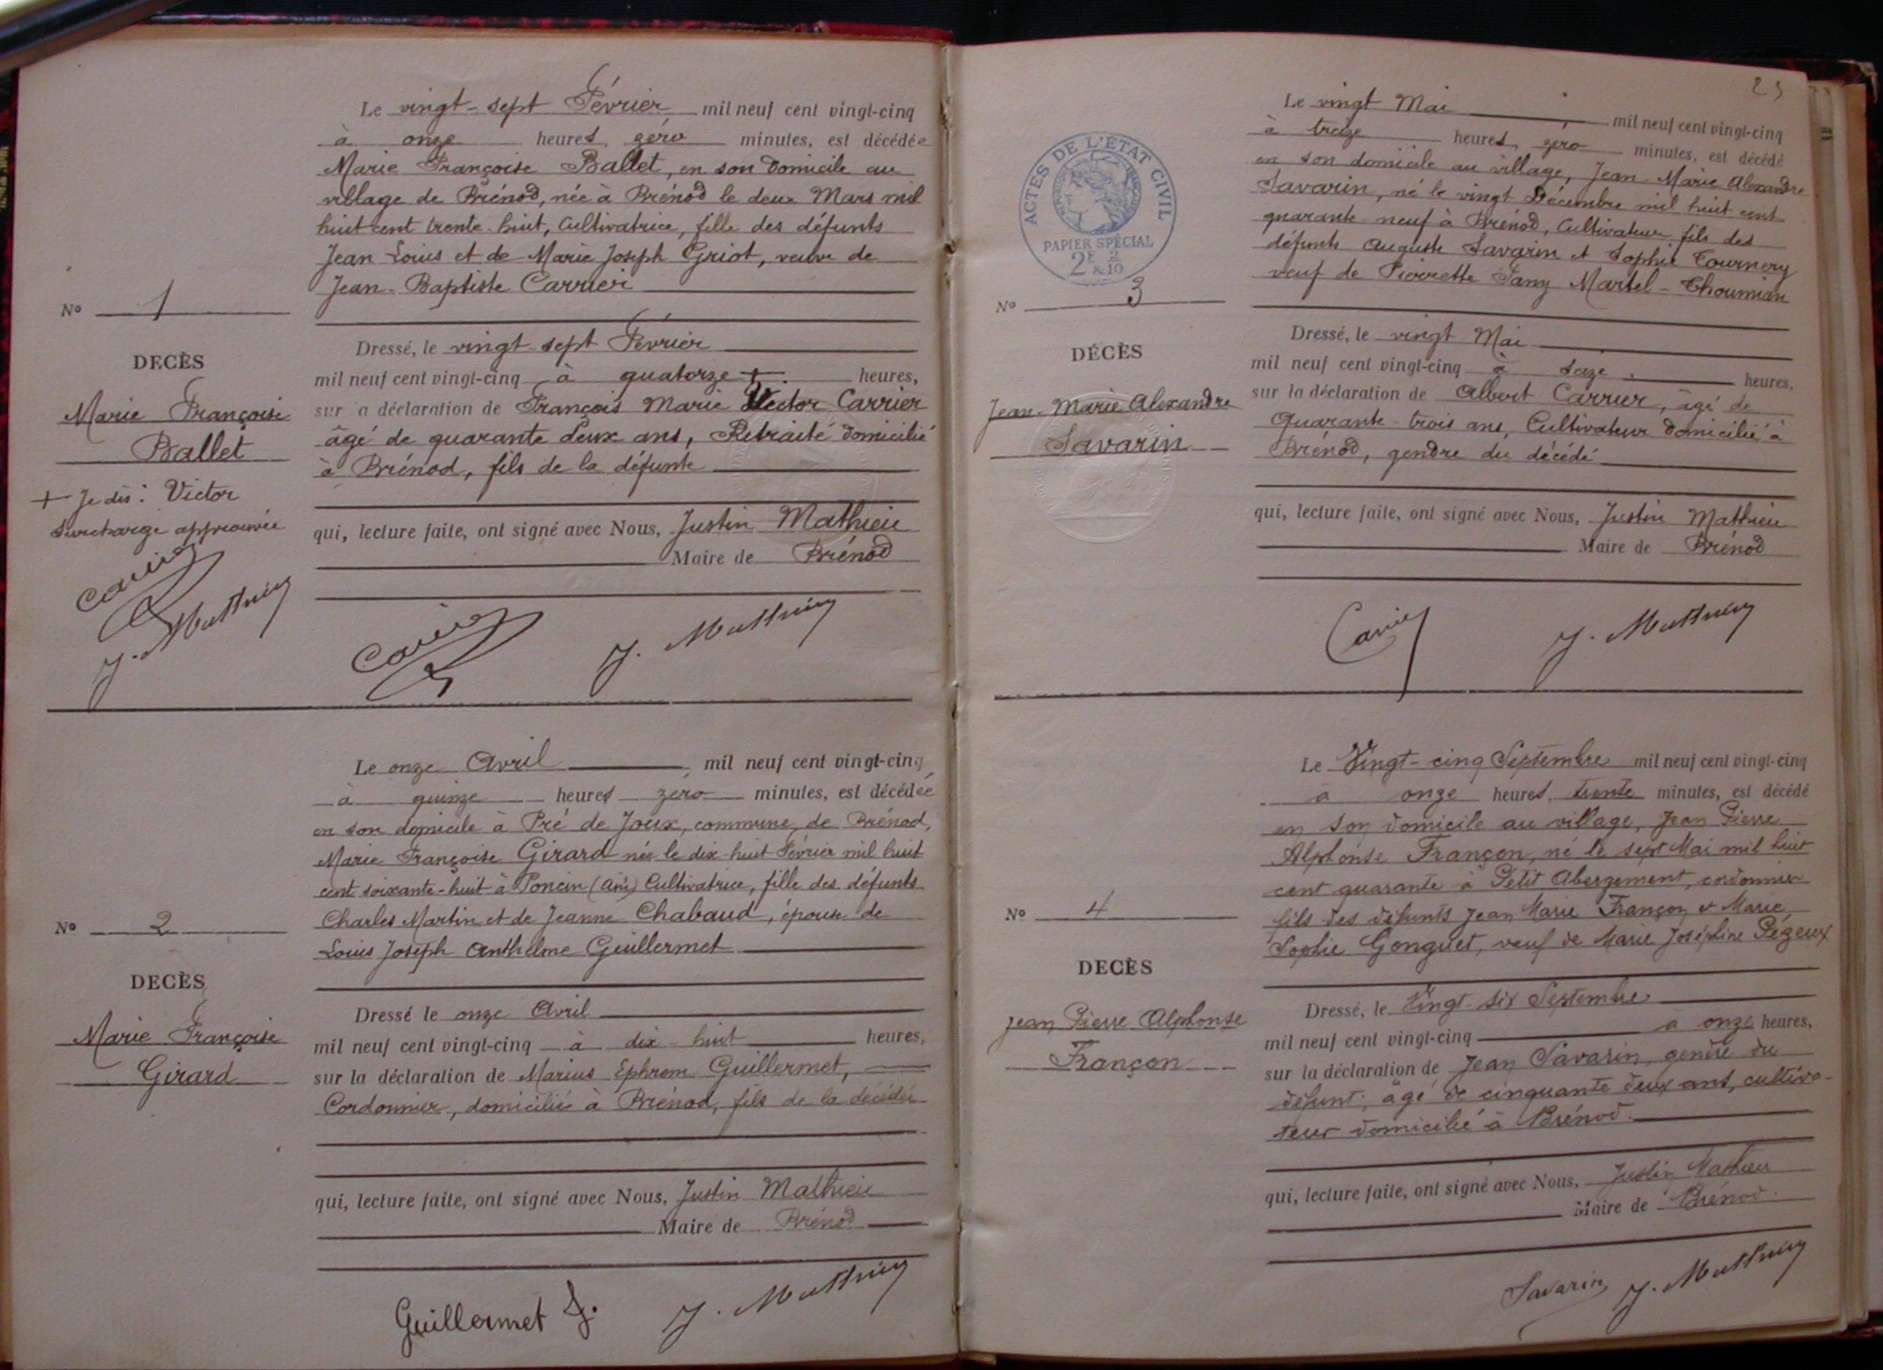 Le vingt-sept Février mil neuf cent vingt-cinq
à onze heures zéro minutes, est décédée
Marie Françoise Ballet, en son domicile au
village de Brénod, née à Brénod le deux Mars mil
huit cent trente-huit, Cultivatrice, fille des défunts
Jean Louis et de Marie Joseph Griot, veuve de
Jean-Baptiste Carrier
No 1
DECÈS
Marie Françoise
Ballet
+ Je dis : Victor
Surcharge approuvée
Carrier
J. Mathieu
Dressé, le vingt-sept Février
mil neuf cent vingt-cinq à quatorze + heures,
sur a déclaration de François Marie Victor Carrier
âgé de quarante deux ans, Retraité domicilié
à Brénod, fils de la défunte
qui, lecture faite, ont signé avec Nous, Justin Mathieu
Maire de Brénod
Carrier J. Mathieu
Le onze Avril mil neuf cent vingt-cinq
à quinze heures zéro minutes, est décédée
en son domicile à Pré de Joux, commune de Brénod,
Marie Françoise Girard née le dix-huit Février mil huit
cent soixante-huit à Poncin (Ain) Cultivatrice, fille des défunts
Charles Martin et de Jeanne Chabaud, épouse de
Louis Joseph Anthelme Guillermet
No 2
DECÈS
Marie Françoise
Girard
Dressé le onze Avril
mil neuf cent vingt-cinq à dix-huit heures,
sur la déclaration de Marius Ephrem Guillermet,
Cordonnier, domicilié à Brénod, fils de la décédée
qui, lecture faite, ont signé avec Nous, Justin Mathieu
Maire de Brénod
Guillermet J. J. Mathieu
Le vingt Mai mil neuf cent vingt-cinq
à treize heures zéro minutes, est décédé
en son domicile au village, Jean Marie Alexandre
Savarin, né le vingt Décembre mil huit cent
quarante-neuf à Brénod, Cultivateur fils des
défunts Auguste Savarin et Sophie Tournery
veuf de Pierrette Fany Martel-Thoumian
ACTES DE L'ÉTAT CIVIL
PAPIER SPÉCIAL
2E 2
&10
No 3
DÉCÈS
Jean-Marie Alexandre
Savarin
Dressé, le vingt Mai
mil neuf cent vingt-cinq à seize heures,
sur la déclaration de Albert Carrier, âgé de
quarante-trois ans, Cultivateur domicilié à
Brénod, gendre du décédé
qui, lecture faite, ont signé avec Nous, Justin Mathieu
Maire de Brénod
Carrier J. Mathieu
Le Vingt-cinq Septembre mil neuf cent vingt-cinq
à onze heures trente minutes, est décédé
en son domicile au village, Jean Pierre
Alphonse Françon, né le sept Mai mil huit
cent quarante à Petit Abergement, cordonnier
fils des défunts Jean Marie Françon & Marie
Sophie Gonguet, veuf de Marie Joséphine Pégeux
No 4
DECÈS
Jean Pierre Alphonse
Françon
Dressé, le Vingt-six Septembre
mil neuf cent vingt-cinq à onze heures,
sur la déclaration de Jean Savarin, gendre du
défunt, âgé de cinquante deux ans, cultiva-
teur domicilié à Brénod.
qui, lecture faite, ont signé avec Nous, Justin Mathieu
Maire de Brénod.
Savarin J. Mathieu